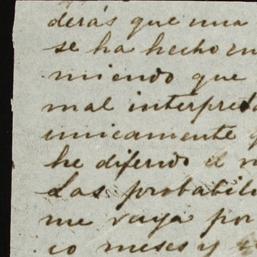 derás que una
se ha hecho en
miendo que
mal interpreta
unicamente q
he diferido el v
Las probabili
me vaya por
co meses y